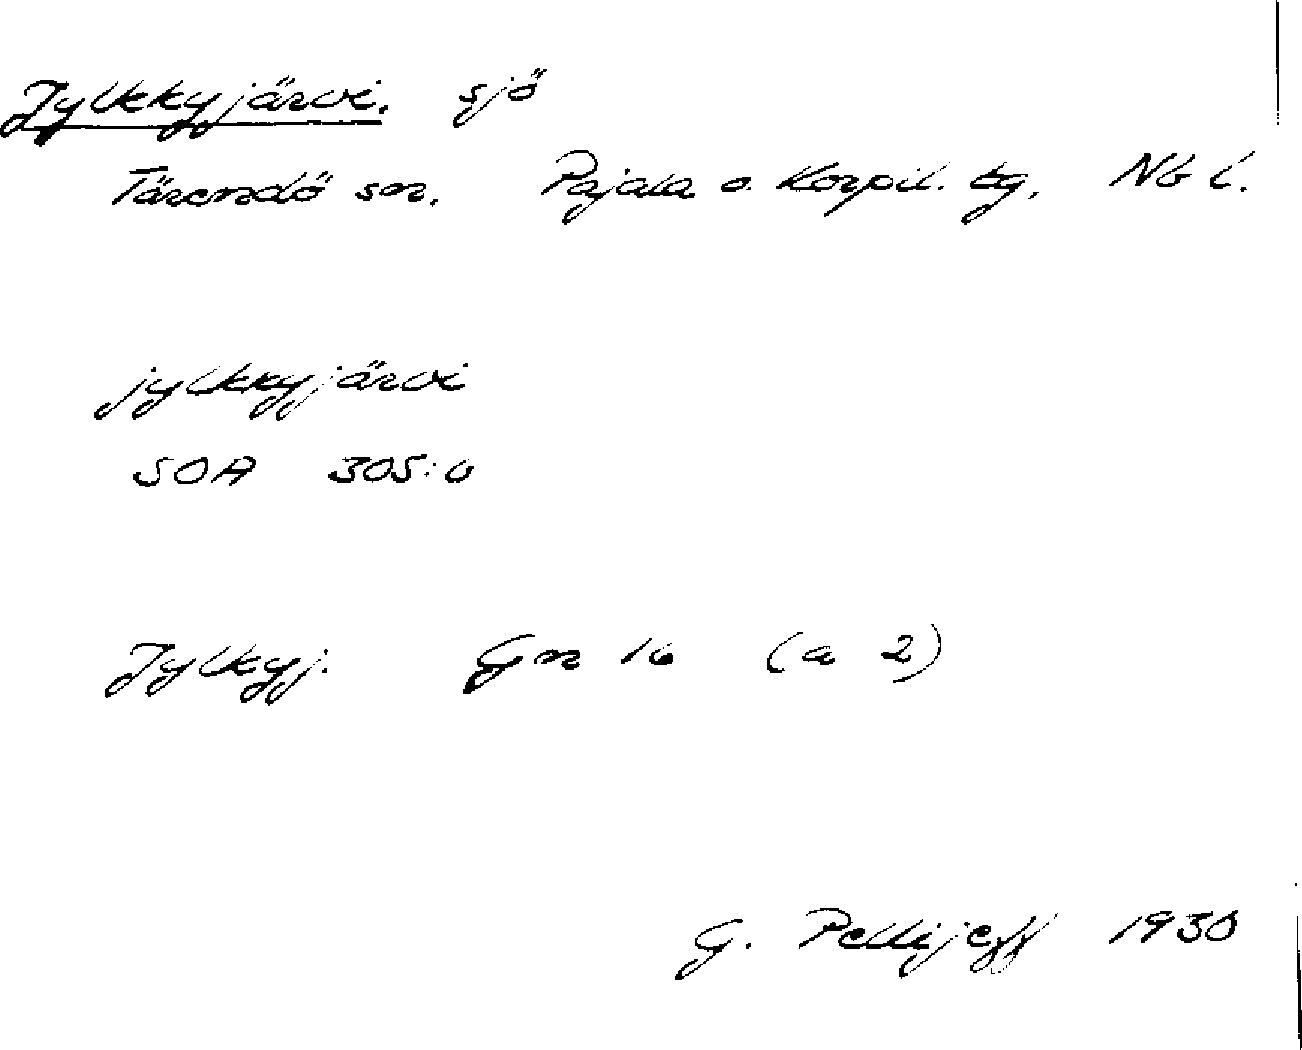 Jylkkyjärvi. sjö
Tärendö sn. Pajala o. Korpil. tg. Nb l.
jylkkyjärvi
SOA 305:6
Jylkyj. Gn 16 (a 2)
G. Pellijeff 1930